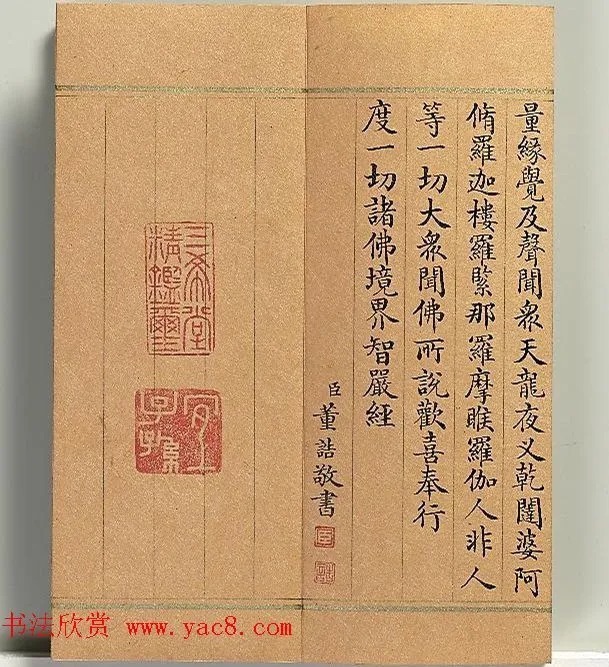 量緣覺及聲聞眾天龍夜乂乾闥婆阿
脩羅迦樓羅緊那羅摩睺羅伽人非人
等一切大眾聞佛所說歡喜奉行
度一切諸佛境界智嚴經
臣董誥敬書
臣
誥
三希堂
精鑑璽
宜子孫
书法欣赏 www.yac8.com